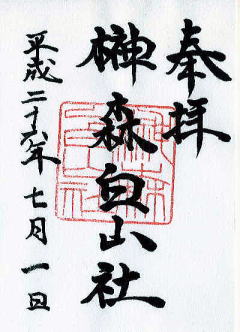 奉拝
榊森白山社
平成二十六年七月一日